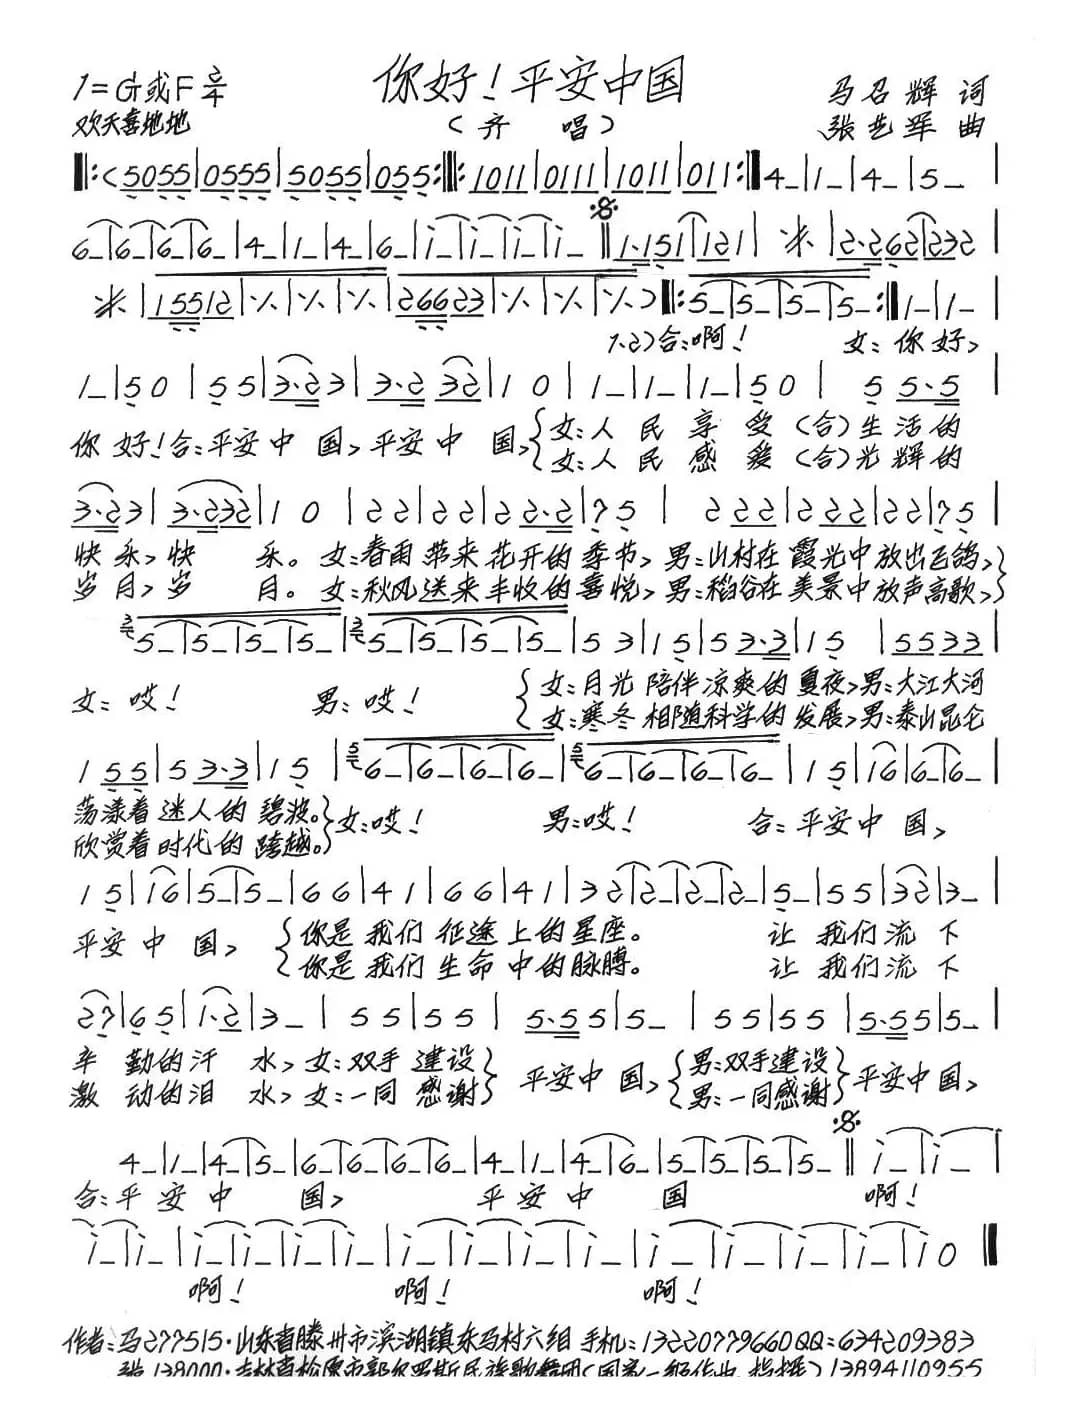 你好！平安中国
1=G或F 2/4
马召辉 词
欢天喜地地
（齐 唱）
张艺军 曲
‖:(5055|0555|5055|055:‖:1011|0111|1011|011:‖4_|1_|4_|5_|
6_|6_|6_|6_|4_|1_|4_|6_|i_|i_|i_|i_‖1·151|121|※|2·262|232|
※|15512|٪|٪|٪|26623|٪|٪|٪)‖:5_|5_|5_|5_:‖1_|1_|
1、2)合:啊！ 女:你好,
1_|50|55|3·23|3·232|10|1_|1_|1_|50|555·5|
你好！合:平安中国,平安中国,{女:人民享受(合)生活的
女:人民感爱(合)光辉的
3·23|3·232|10|22|22|222·2|75|222|222|22|75|
快乐,快乐。女:春雨带来花开的季节,男:山村在霞光中放出飞鸽,}
岁月,岁月。女:秋风送来丰收的喜悦,男:稻谷在美景中放声高歌,
5_|5_|5_|5_|5_|5_|5_|5_|53|15|53·3|15|5533|
女:哎！ 男:哎！ {女:月光陪伴凉爽的夏夜,男:大江大河
女:寒冬相随科学的发展,男:泰山昆仑
155|53·3|15|6_|6_|6_|6_|6_|6_|6_|6_|15|16|6_|6_|
荡漾着迷人的碧波。}女:哎！ 男:哎！ 合:平安中国,
欣赏着时代的跨越。
15|16|5_|5_|66|41|66|41|32|2_|2_|2_|5_|55|32|3_|
平安中国,{你是我们征途上的星座。 让我们流下
你是我们生命中的脉膊。 让我们流下
27|65|1·2|3_|55|55|5·55|5_|55|55|5·55|5_|
辛勤的汗水,女:双手建设}平安中国,{男:双手建设}平安中国,
激动的泪水,女:一同感谢 男:一同感谢
4_|1_|4_|5_|6_|6_|6_|6_|4_|1_|4_|6_|5_|5_|5_|5_‖i_|i_|
合:平安中国, 平安中国 啊！
i_|i_|i_|i_|i_|i_|i_|i_|i_|i_|i_|i_|i_|i_|i0‖
啊！ 啊！ 啊！
作者:马277515·山东省滕州市滨湖镇东马村六组 手机:13220779660QQ:634209383
张138000·吉林省松原市郭尔罗斯民族歌舞团(国家一级作曲、指挥)13894110955